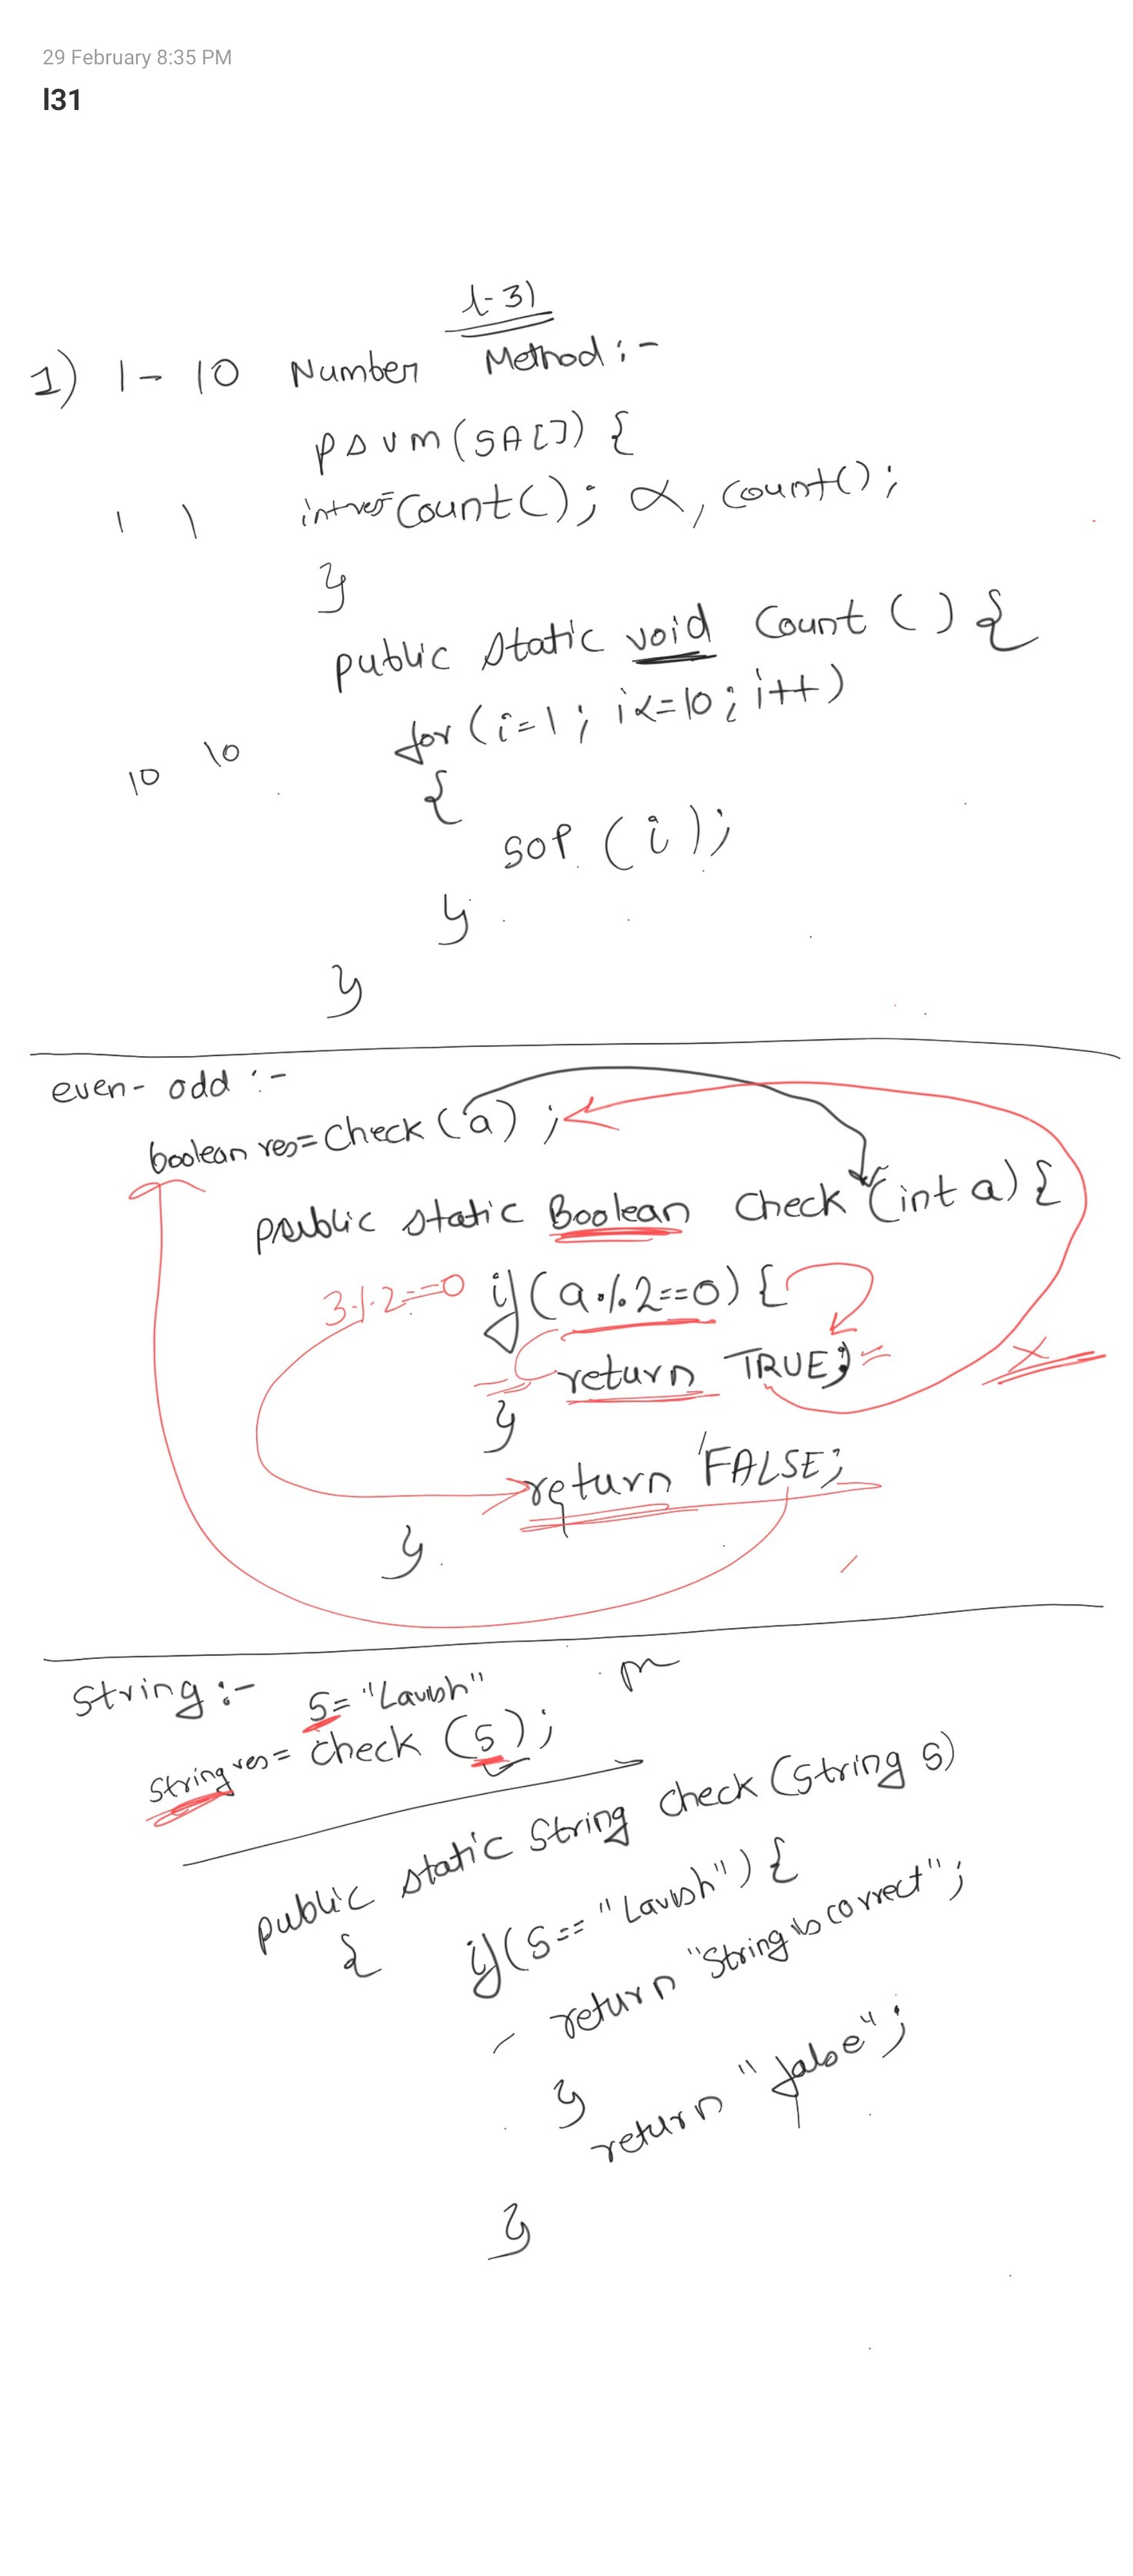 29 February 8:35 PM
l31
L-31
1) 1-10 Number Method:-
psvm(SA[]) {
1 1 int res=Count(); α, count();
}
public static void Count () {
for (i=1; i<=10; i++)
10 10
{
SOP (i);
}
}
even- odd :-
boolean res=Check (a) ;
public static Boolean Check (int a) {
3%2==0 if (a%2==0) {
return TRUE;
}
return FALSE;
}
String:- S= "Lavish"
String res= Check (S);
public static String Check (String S)
{ if (S== "Lavish") {
return "String is correct";
}
return "false";
}